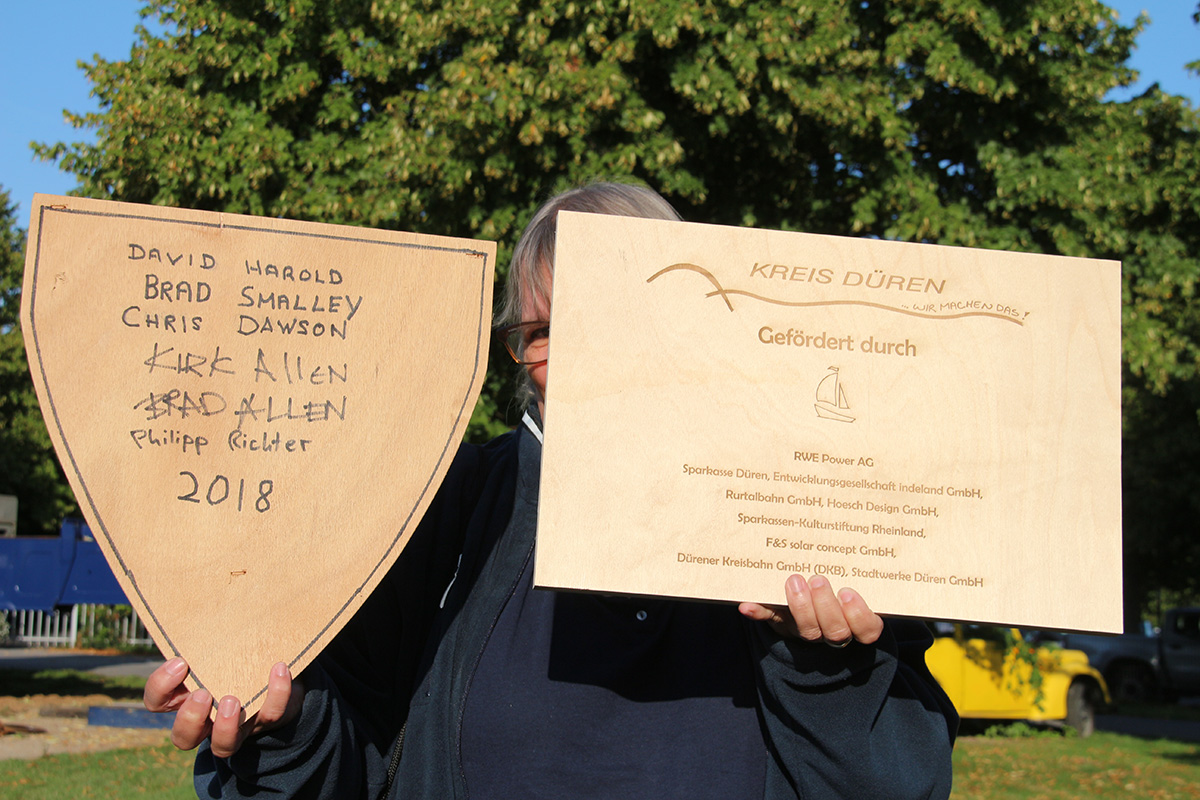 DAVID HAROLD
BRAD SMALLEY
CHRIS DAWSON
KIRK AllEN
BRAD ALLEN
Philipp Richter
2018
KREIS DÜREN
...WIR MACHEN DAS!
Gefördert durch
RWE Power AG
Sparkasse Düren, Entwicklungsgesellschaft indeland GmbH,
Rurtalbahn GmbH, Hoesch Design GmbH,
Sparkassen-Kulturstiftung Rheinland,
F&S solar concept GmbH,
Dürener Kreisbahn GmbH (DKB), Stadtwerke Düren GmbH